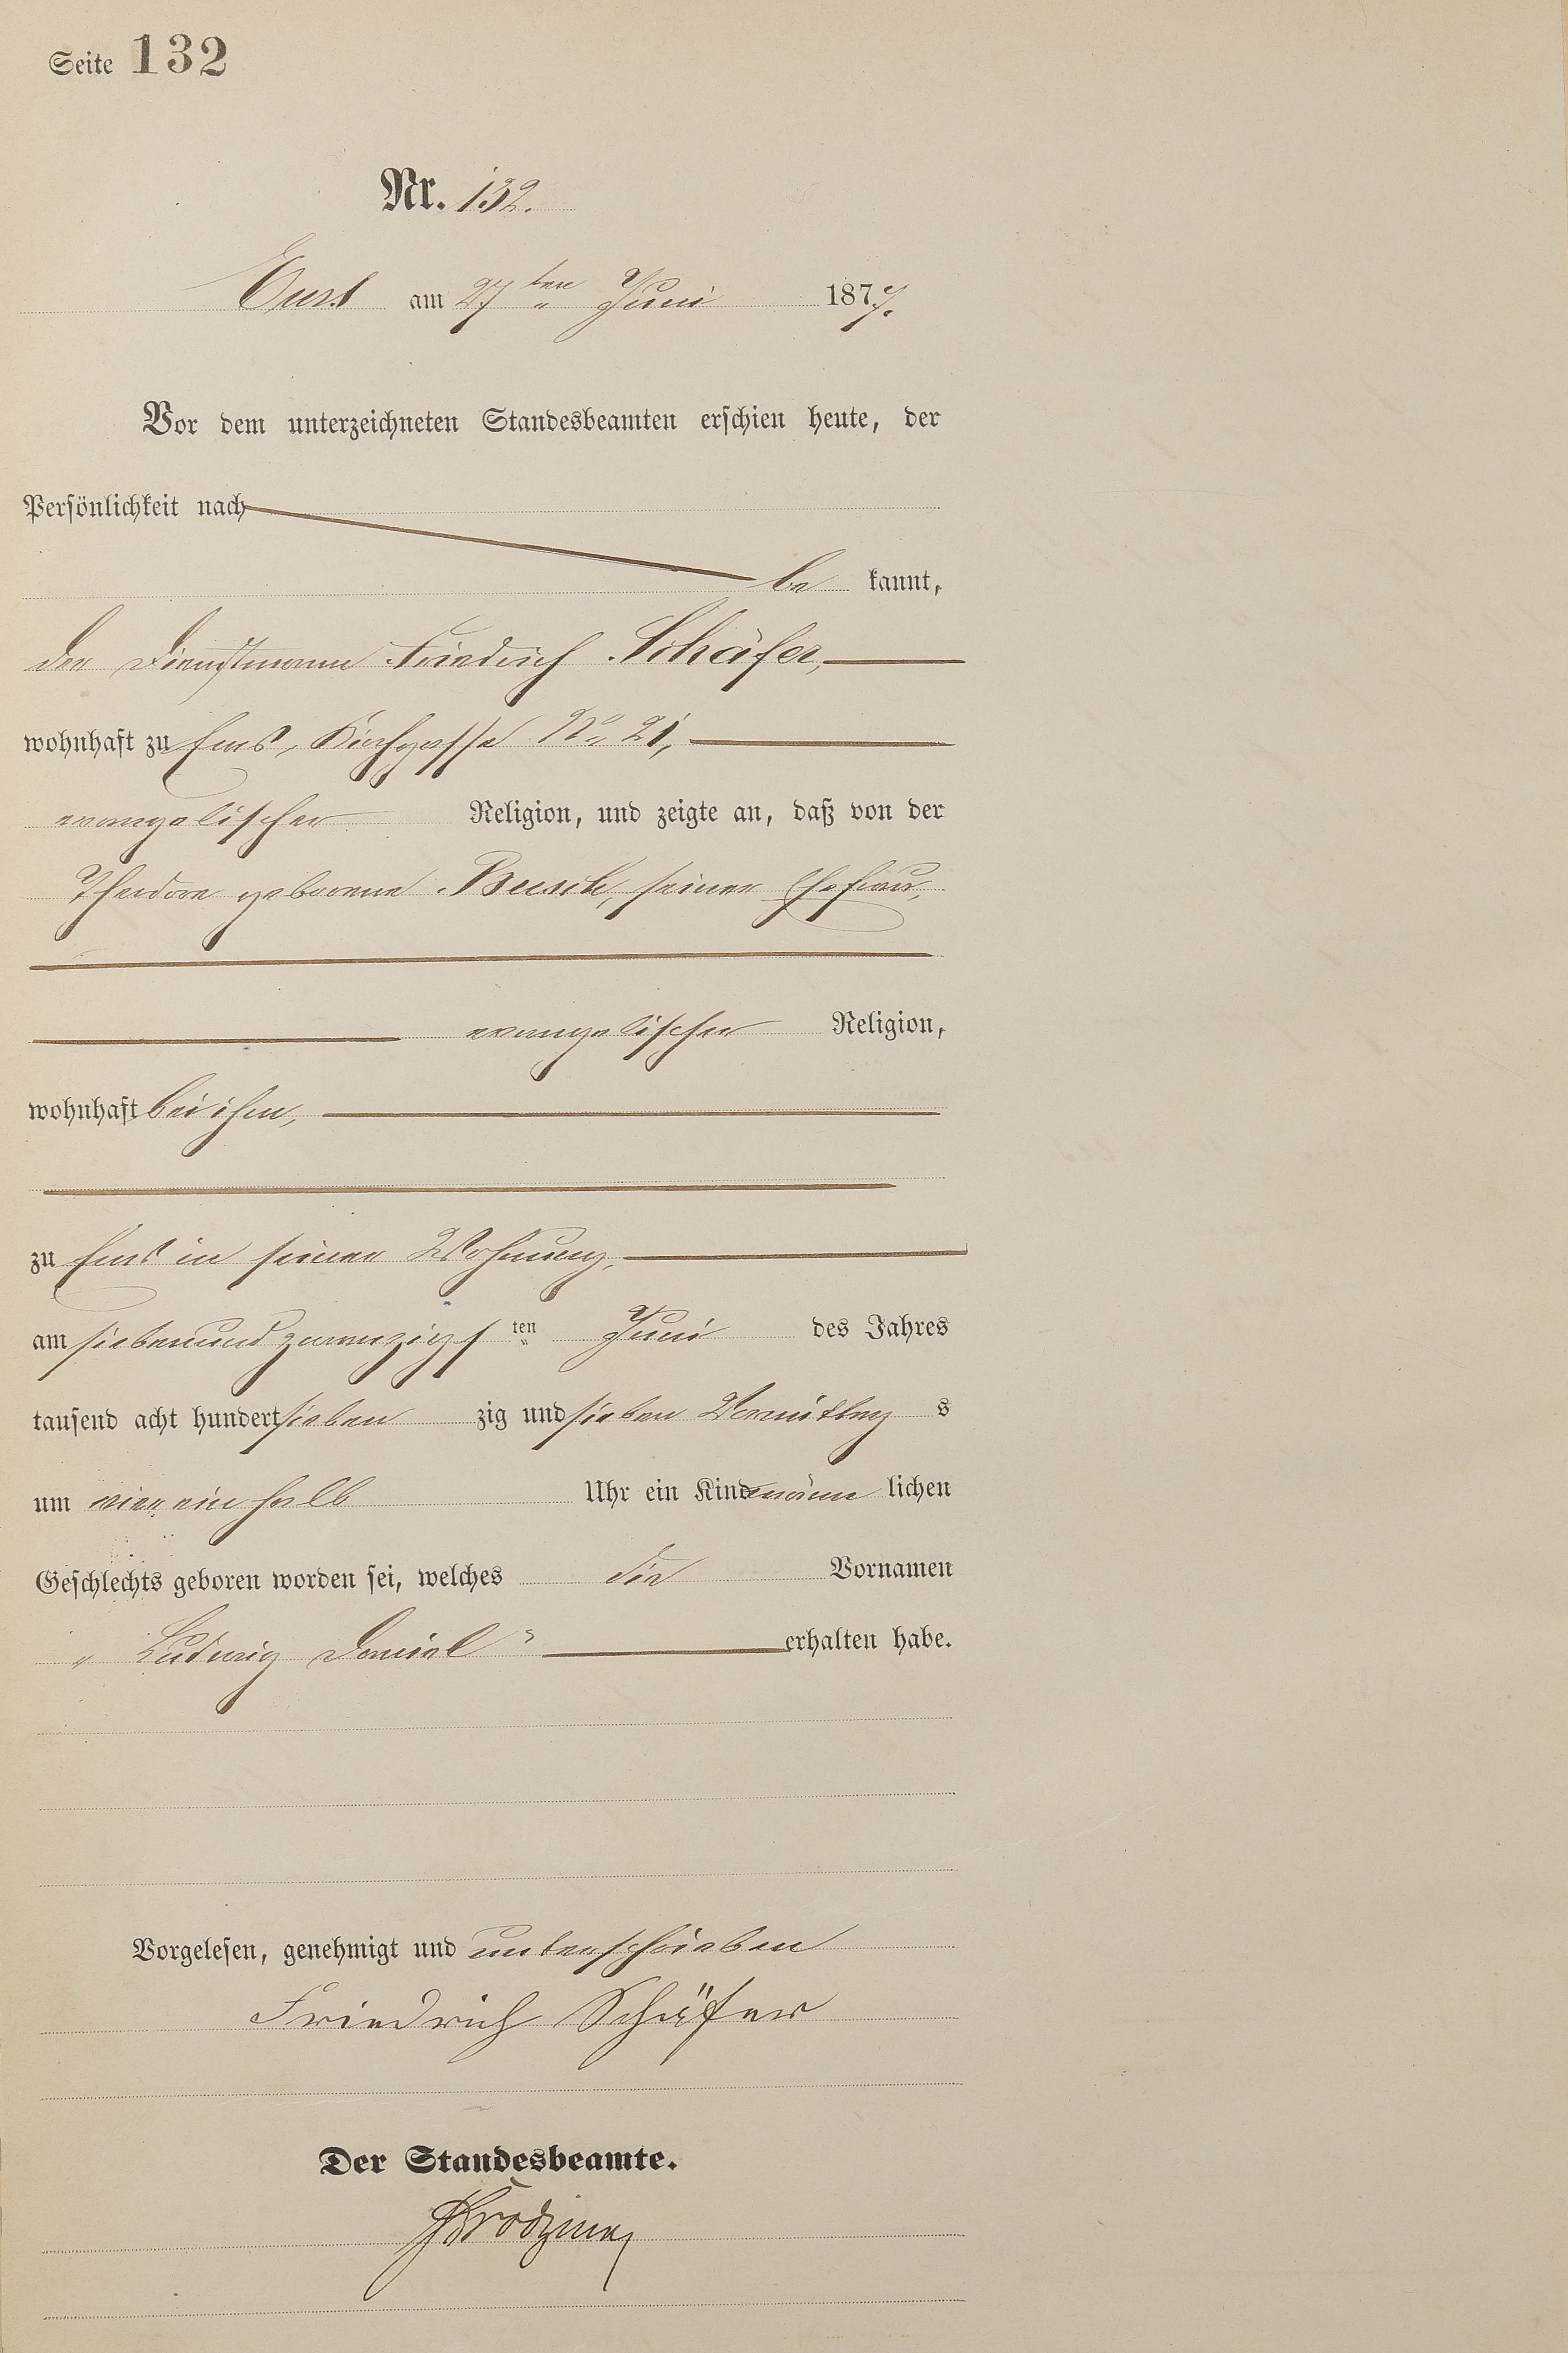 Seite 132
Nr. 132.
Ems am 27ten Juni 1877.
Vor dem unterzeichneten Standesbeamten erschien heute, der
Persönlichkeit nach
be kannt,
der Dienstmann Friedrich Schäfer,
wohnhaft zu Ems, Kirchgasse No. 21,
evangelischer Religion, und zeigte an, daß von der
Theodore geborene Busch, seiner Ehefrau,
evangelischer Religion,
wohnhaft bei ihm,
zu Ems in seiner Wohnung,
am siebenundzwanzigsten Juni des Jahres
tausend acht hundert sieben zig und sieben Vormittag s
um vier ein halb Uhr ein Kind männ lichen
Geschlechts geboren worden sei, welches die Vornamen
„Ludwig Daniel“ erhalten habe.
Vorgelesen, genehmigt und unterschrieben
Friedrich Schäfer
Der Standesbeamte.